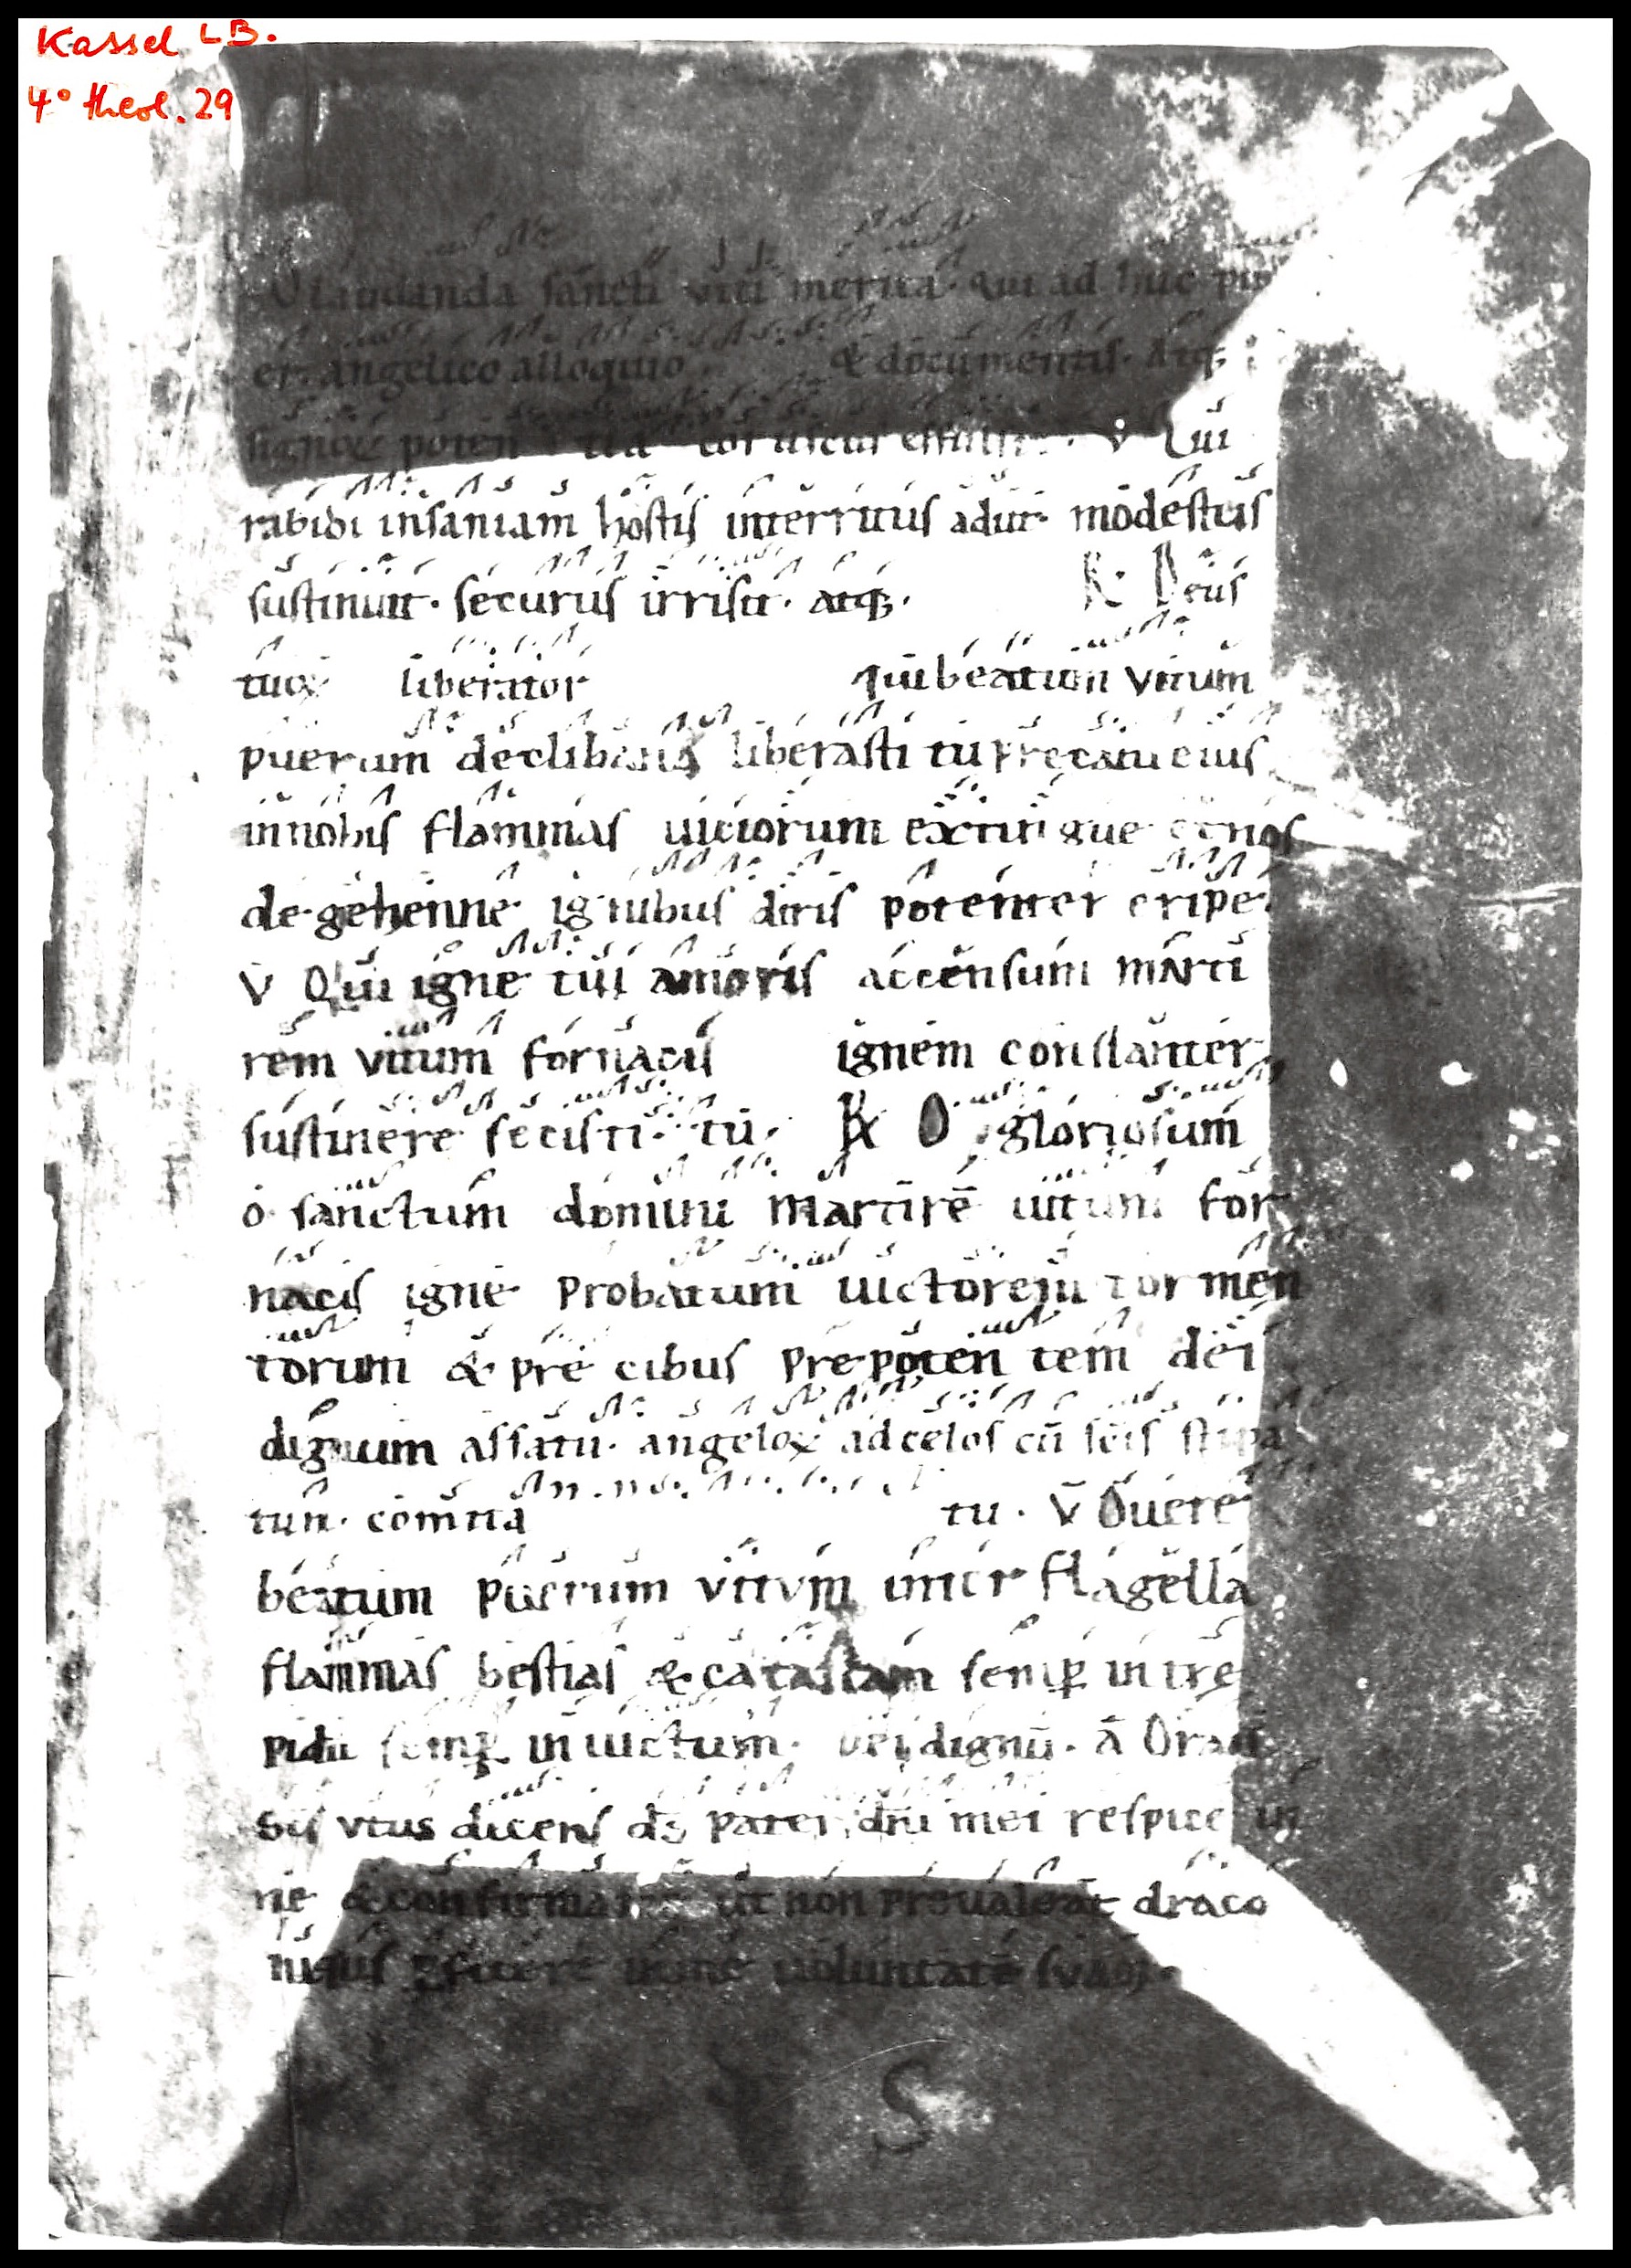 Kassel LB.
4° theol. 29
O laudanda sancti viti merita. qui ad huc pu
er. angelico alloquio. & documentis. Atq;
signoꝝ poten coruscus effulsit. V Qui
rabidi insaniam hostis interritus adiit. modestus
sustinuit. securus irrisit. atq;. R. Deus
tuoꝝ liberator qui beatum vitum
puerum declibanis liberasti tu precatu eius
in nobis flammas uiciorum extingue et nos
de gehenne ignibus diris potenter eripe.
V Qui igne tui amoris accensum marti
rem vitum fornacis ignem constanter
sustinere fecisti. tu. R O gloriosum
o sanctum domini martirē uitum for
nacis igne probatum uictorem tormen
torum & pre cibus prepotentem dei
dignum assatu. angeloꝝ ad celos cū scis stipa
tum. comita tu. V Vere
beatum puerum vitvm inter flagella
flammas bestias & catastam semꝑ intre
pidū semꝑ in uictum. dei dignū. A Oran
vitus dicens ds pater dni mei respice in
me & confirma me ut non preualeat draco
iniquus ꝑficere in me uoluntatē suam.
S